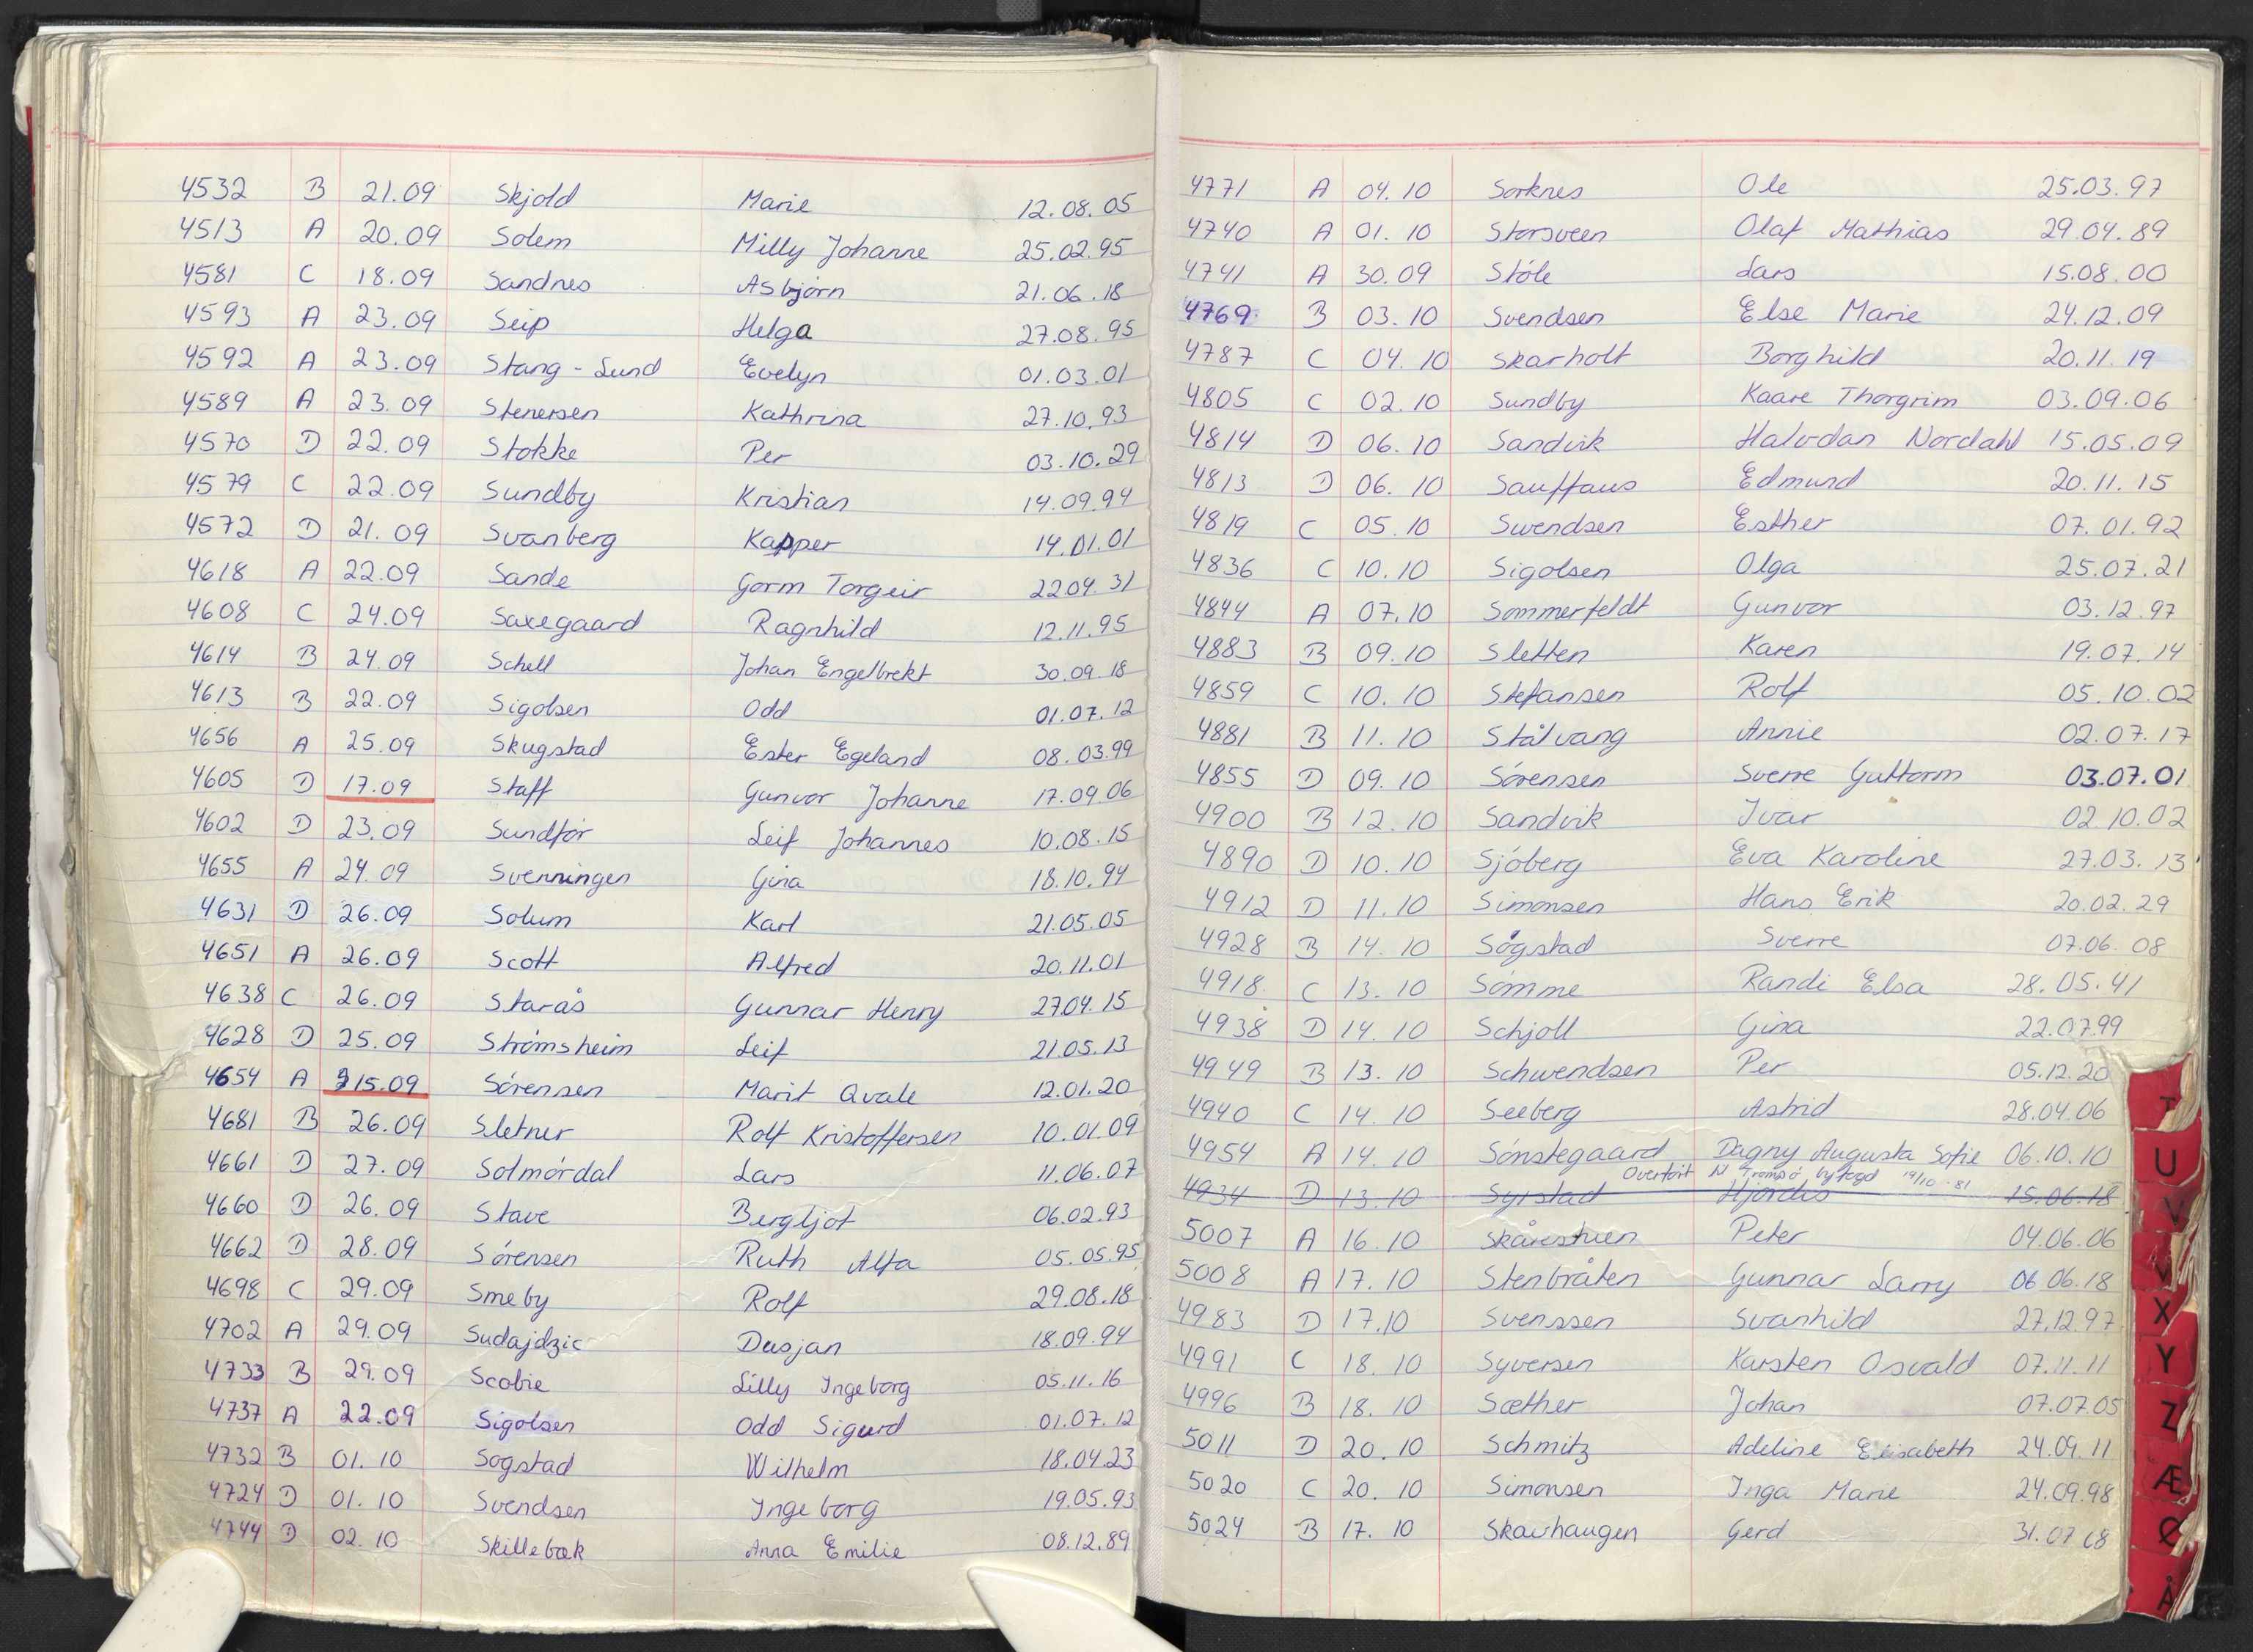 4532 B 21.09 Skjold Marie 12.08.05
4513 A 20.09 Solem Milly Johanne 25.02.95
4581 C 18.09 Sandnes Asbjørn 21.06.18
4593 A 23.09 Seip Helga 27.08.95
4592 A 23.09 Stang - Lund Evelyn 01.03.01
4589 A 23.09 Stenersen Kathrina 27.10.93
4570 D 22.09 Stokke Per 03.10.29
4579 C 22.09 Sundby Kristian 14.09.94
4572 D 21.09 Svanberg Kapper 14.01.01
4618 A 22.09 Sande Gorm Torgeir 22.04.31
4608 C 24.09 Saxegaard Ragnhild 12.11.95
4614 B 24.09 Schell Johan Engelbrekt 30.09.18
4613 B 22.09 Sigolsen Odd 01.07.12
4656 A 25.09 Skugstad Ester Egeland 08.03.99
4605 D 17.09 Staff Gunvor Johanne 17.09.06
4602 D 23.09 Sundför Leif Johannes 10.08.15
4655 A 24.09 Svenningen Gina 18.10.94
4631 D 26.09 Solum Karl 21.05.05
4651 A 26.09 Scott Alfred 20.11.01
4638 C 26.09 Starås Gunnar Henry 27.04.15
4628 D 25.09 Strömsheim Leif 21.05.13
4654 A 15.09 Sörensen Marit Qvale 12.01.20
4681 B 26.09 Sletner Rolf Kristoffersen 10.01.09
4661 D 27.09 Solmördal Lars 11.06.07
4660 D 26.09 Stave Bergljot 06.02.93
4662 D 28.09 Sörensen Ruth Alfa 05.05.95
4698 C 29.09 Smeby Rolf 29.08.18
4702 A 29.09 Sudajdzic Dusjan 18.09.94
4733 B 29.09 Scobie Lilly Ingeborg 05.11.16
4737 A 22.09 Sigolsen Odd Sigurd 01.07.12
4732 B 01.10 Sogstad Wilhelm 18.04.23
4724 D 01.10 Svendsen Ingeborg 19.05.93
4744 D 02.10 Skillebæk Anna Emilie 08.12.89
4771 A 04.10 Sorknes Ole 25.03.97
4740 A 01.10 Storsveen Olaf Mathias 29.04.89
4741 A 30.09 Stöle Lars 15.08.00
4769 B 03.10 Svendsen Else Marie 24.12.09
4787 C 04.10 Skarholt Borghild 20.11.19
4805 C 02.10 Sundby Kaare Thorgrim 03.09.06
4814 D 06.10 Sandvik Halvdan Nordahl 15.05.09
4813 D 06.10 Sauffaus Edmund 20.11.15
4819 C 05.10 Swendsen Esther 07.01.92
4836 C 10.10 Sigolsen Olga 25.07.21
4844 A 07.10 Sommerfeldt Gunvor 03.12.97
4883 B 09.10 Sletten Karen 19.07.14
4859 C 10.10 Stefansen Rolf 05.10.02
4881 B 11.10 Stålvang Annie 02.07.17
4855 D 09.10 Sörensen Sverre Guttorm 03.07.01
4900 B 12.10 Sandvik Ivar 02.10.02
4890 D 10.10 Sjöberg Eva Karoline 27.03.13
4912 D 11.10 Simonsen Hans Erik 20.02.29
4928 B 14.10 Sögstad Sverre 07.06.08
4918 C 13.10 Sömme Randi Elsa 28.05.41
4938 D 14.10 Schjoll Gina 22.07.99
4949 B 13.10 Schwendsen Per 05.12.20
4940 C 14.10 Seeberg Astrid 28.04.06
4954 A 14.10 Sönstegaard Dagny Augusta Sofie 06.10.10
Overfört til Tromsö byfogd 19/10-81
4934 D 13.10 Syrstad Hjördis 15.06.18
5007 A 16.10 Skårestuen Peter 04.06.06
5008 A 17.10 Stenbråten Gunnar Larry 06.06.18
4983 D 17.10 Svenssen Svanhild 27.12.97
4991 C 18.10 Syversen Karsten Osvald 07.11.11
4996 B 18.10 Sæther Johan 07.07.05
5011 D 20.10 Schmitz Adeline Elisabeth 24.09.11
5020 C 20.10 Simonsen Inga Marie 24.09.98
5024 B 17.10 Skavhaugen Gerd 31.07.18
T
U
V
X
Y
Z
Æ
Ø
Å